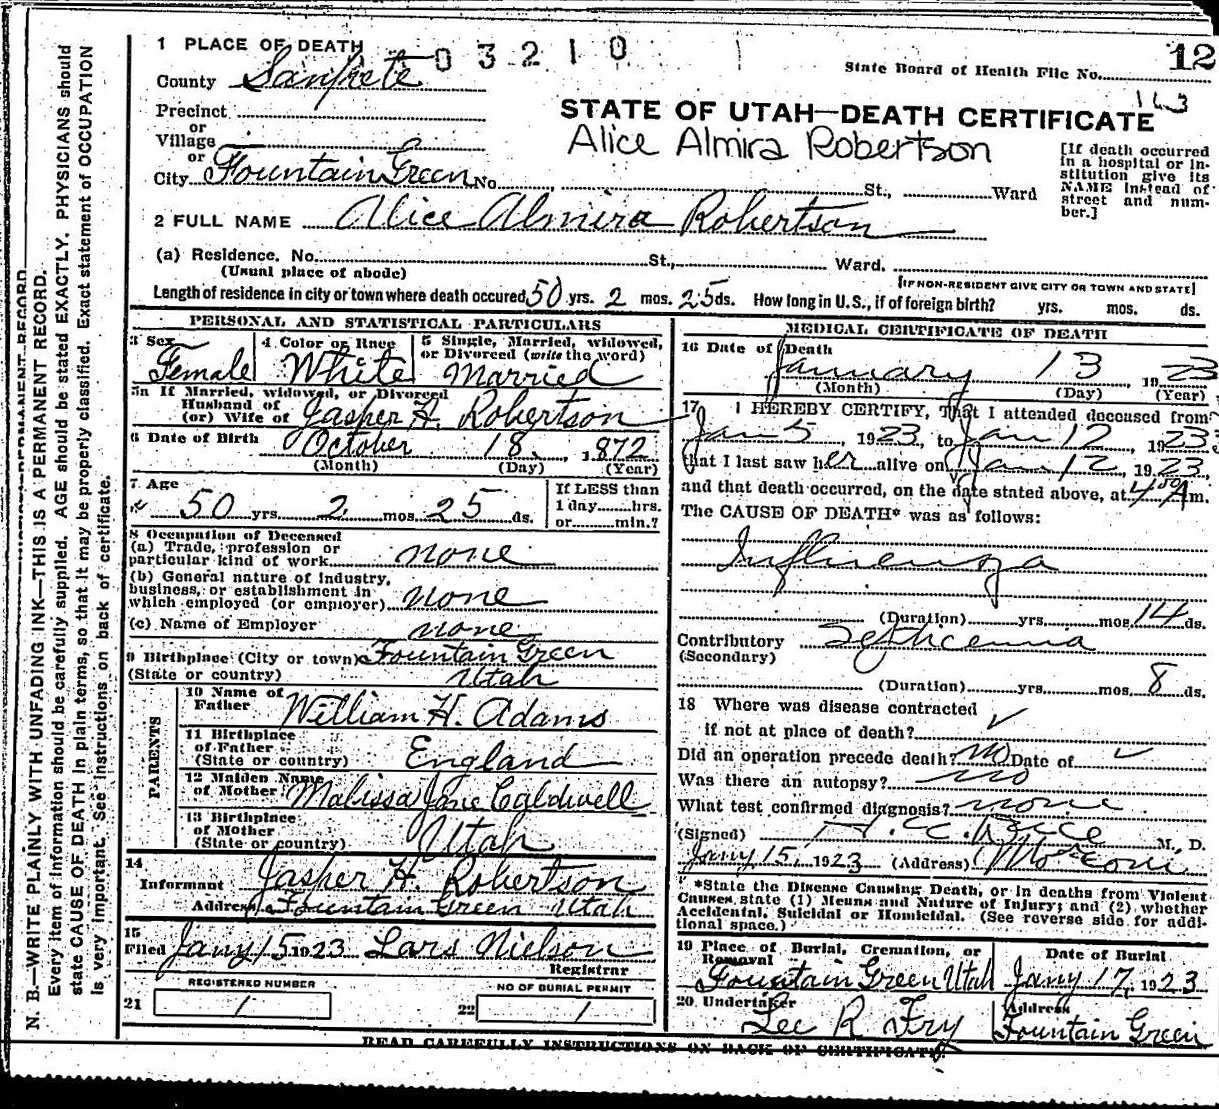 1 PLACE OF DEATH
03210
12
State Board of Health File No.
County Sanpete
163
Precinct
or
Village
or
City Fountain Green No. St., Ward
STATE OF UTAH—DEATH CERTIFICATE
Alice Almira Robertson
[If death occurred
in a hospital or in-
stitution give its
NAME instead of
street and num-
ber.]
2 FULL NAME Alice Almira Robertson
(a) Residence. No. St., Ward.
(Usual place of abode)
[IF NON-RESIDENT GIVE CITY OR TOWN AND STATE]
Length of residence in city or town where death occured 50 yrs. 2 mos. 25 ds. How long in U.S., if of foreign birth? yrs. mos. ds.
PERSONAL AND STATISTICAL PARTICULARS
3 Sex
Female
4 Color or Race
White
5 Single, Married, widowed,
or Divorced (write the word)
Married
5a If Married, widowed, or Divorced
Husband of
(or) Wife of Jasper H. Robertson
6 Date of Birth October 18, 1872
(Month) (Day) (Year)
7 Age
50 yrs. 2 mos. 25 ds.
If LESS than
1 day hrs.
or min.?
8 Occupation of Deceased
(a) Trade, profession or
particular kind of work none
(b) General nature of industry,
business, or establishment in
which employed (or employer) none
(c) Name of Employer none
9 Birthplace (City or town) Fountain Green
(State or country) Utah
PARENTS
10 Name of
Father William H. Adams
11 Birthplace
of Father
(State or country) England
12 Maiden Name
of Mother Malissa Jane Caldwell
13 Birthplace
of Mother
(State or country) Utah
14
Informant Jasper H. Robertson
Address Fountain Green Utah
15
Filed Jany 15 1923 Lars Nielson
Registrar
REGISTERED NUMBER
21 1
NO OF BURIAL PERMIT
22 1
MEDICAL CERTIFICATE OF DEATH
16 Date of Death
January 13, 1923
(Month) (Day) (Year)
17 I HEREBY CERTIFY, That I attended deceased from
Jan 5, 1923, to Jan 12 1923
that I last saw her alive on Jan 12, 1923,
and that death occurred, on the date stated above, at 4 A m.
The CAUSE OF DEATH* was as follows:
Influenza
(Duration) yrs. mos. 14 ds.
Contributory Septicemia
(Secondary)
(Duration) yrs. mos. 8 ds.
18 Where was disease contracted
if not at place of death?
Did an operation precede death? no Date of
Was there an autopsy? no
What test confirmed diagnosis? none
(Signed) M. D.
Jany 15, 1923 (Address) Moroni
*State the Disease Causing Death, or in deaths from Violent
Causes state (1) Means and Nature of Injury; and (2) whether
Accidental, Suicidal or Homicidal. (See reverse side for addi-
tional space.)
19 Place of Burial, Cremation, or
Removal
Fountain Green Utah
Date of Burial
Jany 17, 1923
20 Undertaker
Lee R Fry
Address
Fountain Green
READ CAREFULLY INSTRUCTIONS ON BACK OF CERTIFICATE
N. B.—WRITE PLAINLY WITH UNFADING INK—THIS IS A PERMANENT RECORD.
Every item of information should be carefully supplied. AGE should be stated EXACTLY. PHYSICIANS should
state CAUSE OF DEATH in plain terms, so that it may be properly classified. Exact statement of OCCUPATION
is very important. See instructions on back of certificate.